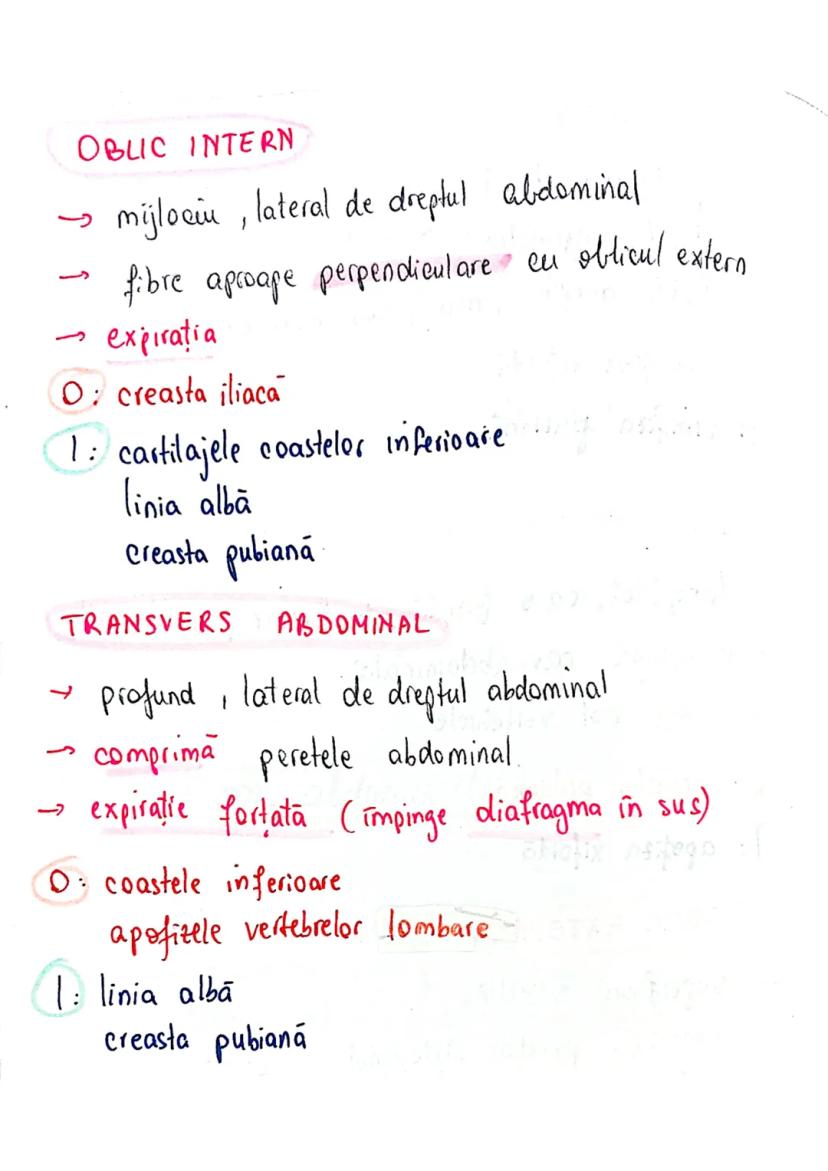 OBLIC INTERN
→ mijlociu, lateral de dreptul abdominal
→ fibre aproape perpendiculare cu oblicul extern
→ expirația
O: creasta iliacă
I: cartilajele coastelor inferioare
linia albă
creasta pubiană
TRANSVERS ABDOMINAL
→ profund, lateral de dreptul abdominal
→ comprimă peretele abdominal
→ expirație forțată (împinge diafragma în sus)
O: coastele inferioare
apofizele vertebrelor lombare
I: linia albă
creasta pubiană